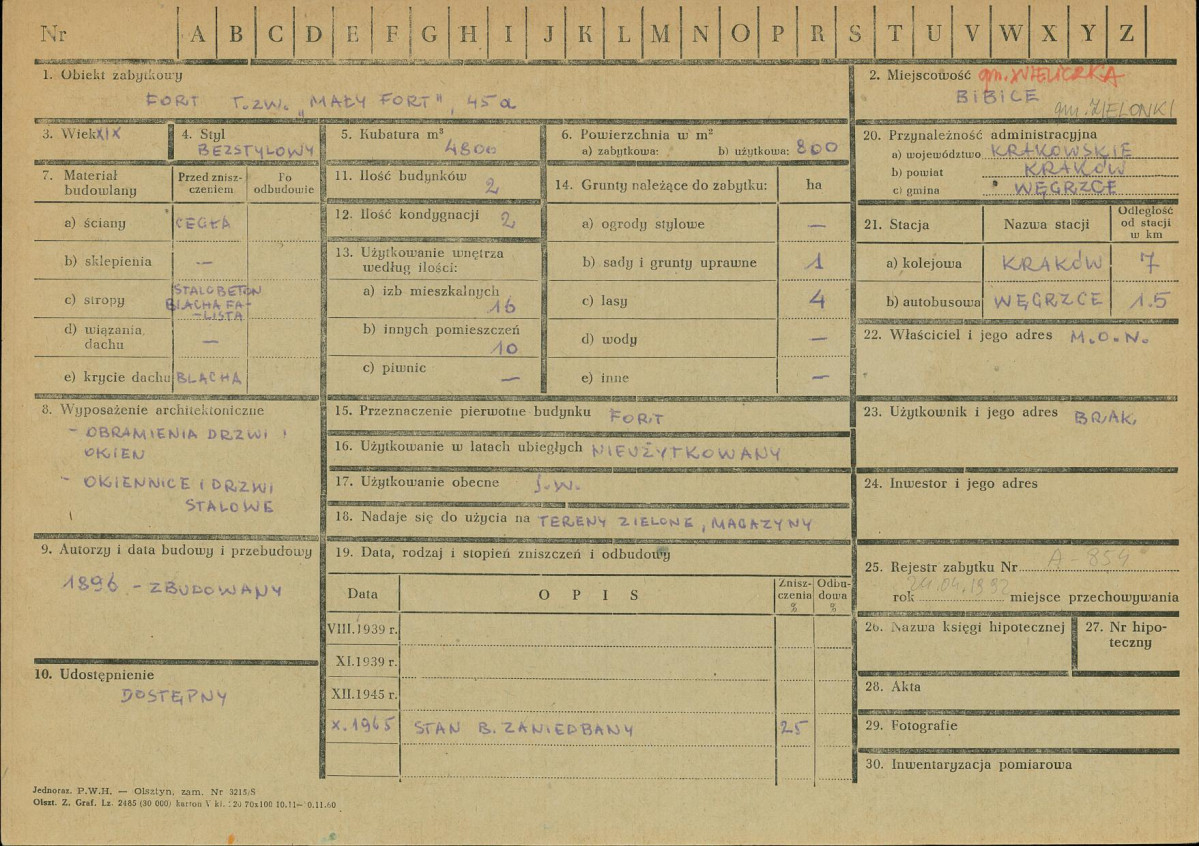 Nr A B C D E F G H I J K L M N O P R S T U V W X Y Z
1. Obiekt zabytkowy
FORT T.ZW. „MAŁY FORT", 45a
2. Miejscowość gm. WIELICZKA
BIBICE
gm. ZIELONKI
3. Wiek XIX
4. Styl
BEZSTYLOWY
5. Kubatura m³
4800
6. Powierzchnia w m²
a) zabytkowa: b) użytkowa: 800
20. Przynależność administracyjna
a) województwo KRAKOWSKIE
b) powiat KRAKÓW
c) gmina WĘGRZCE
7. Materiał budowlany
Przed znisz-
czeniem
Po
odbudowie
a) ściany CEGŁA
b) sklepienia —
c) stropy STALOBETON
BLACHA FA-
-LISTA
d) wiązania
dachu —
e) krycie dachu BLACHA
11. Ilość budynków
2
12. Ilość kondygnacji 2
13. Użytkowanie wnętrza
według ilości:
a) izb mieszkalnych
16
b) innych pomieszczeń
10
c) piwnic —
14. Grunty należące do zabytku: ha
a) ogrody stylowe —
b) sady i grunty uprawne 1
c) lasy 4
d) wody —
e) inne —
21. Stacja Nazwa stacji
Odległość
od stacji
w km
a) kolejowa KRAKÓW 7
b) autobusowa WĘGRZCE 1.5
22. Właściciel i jego adres M.O.N.
8. Wyposażenie architektoniczne
- OBRAMIENIA DRZWI I
OKIEN
- OKIENNICE I DRZWI
STALOWE
15. Przeznaczenie pierwotne budynku FORT
16. Użytkowanie w latach ubiegłych NIEUŻYTKOWANY
17. Użytkowanie obecne J.W.
18. Nadaje się do użycia na TERENY ZIELONE, MAGAZYNY
23. Użytkownik i jego adres BRAK.
24. Inwestor i jego adres
9. Autorzy i data budowy i przebudowy
1896 - ZBUDOWANY
10. Udostępnienie
DOSTĘPNY
19. Data, rodzaj i stopień zniszczeń i odbudowy
Data OPIS
Znisz-
czenia
%
Odbu-
dowa
%
VIII.1939 r.
XI.1939 r.
XII.1945 r.
X.1965 STAN B. ZANIEDBANY 25
25. Rejestr zabytku Nr A-854
rok 24.04.1992 miejsce przechowywania
26. Nazwa księgi hipotecznej
27. Nr hipo-
teczny
28. Akta
29. Fotografie
30. Inwentaryzacja pomiarowa
Jednoraz. P.W.H. — Olsztyn, zam. Nr 3215/S
Olszt. Z. Graf. Lz. 2485 (30 000) karton V kl.